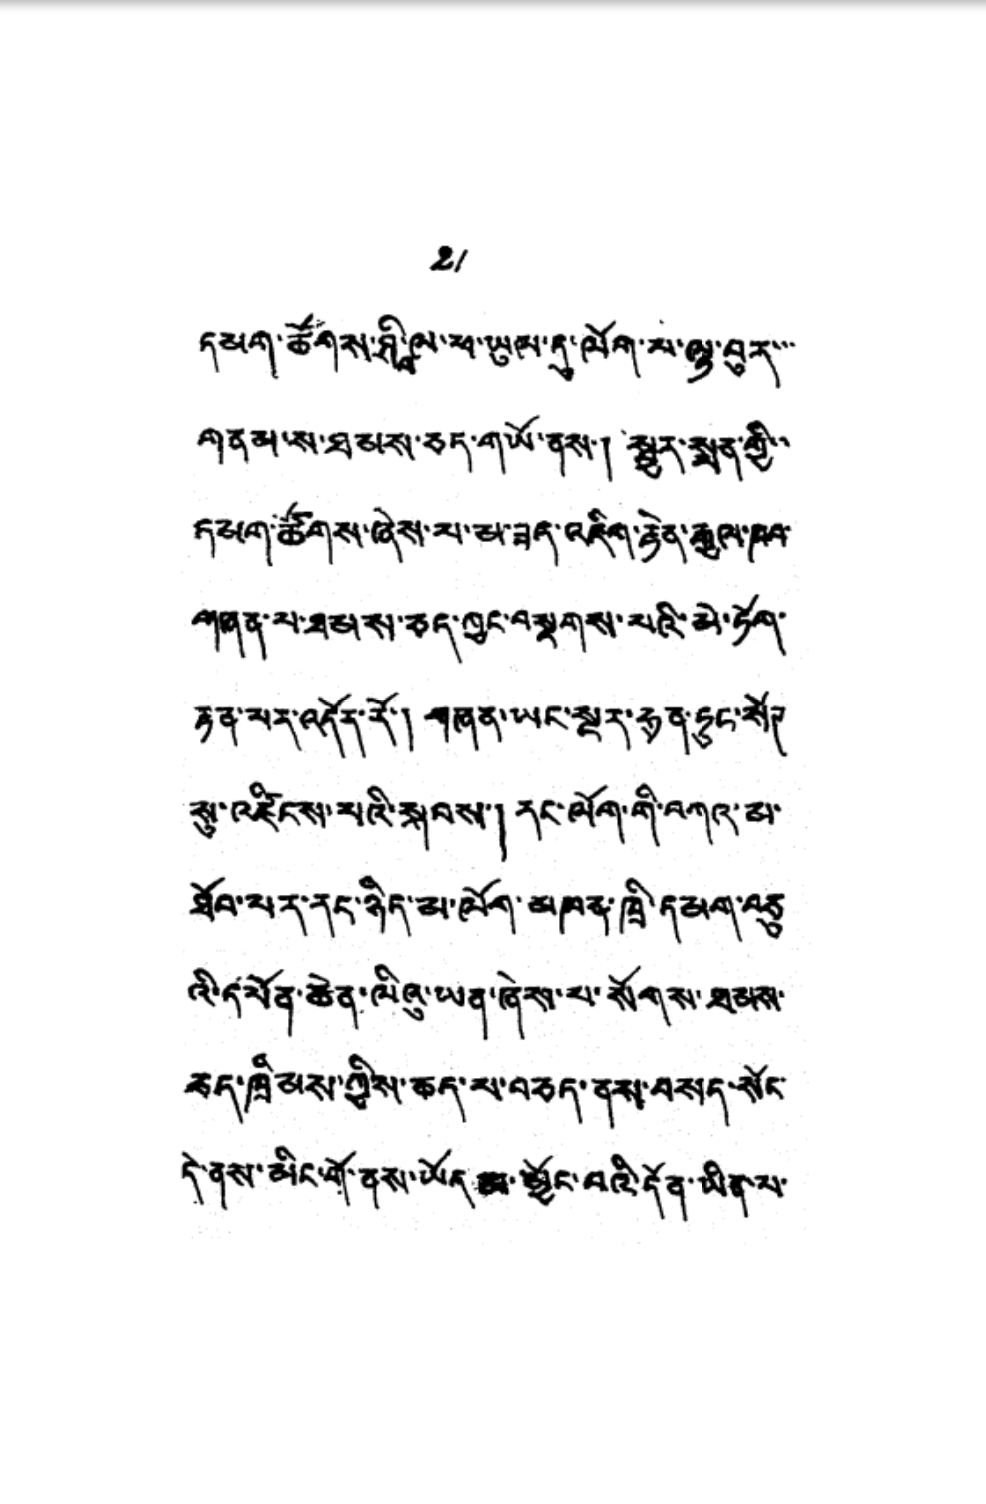 21
དམག་ཚོགས་ཕྱི་ལ་ཕ་ཡུལ་དུ་ལོག་པ་ལྟ་བུར་
གནམ་ས་ཐམས་ཅད་གཡོ་ནས། སྨན་གྱི་
དམག་ཚོགས་ཞེས་པ་མ་ཟད་འཇིག་རྟེན་རྒྱལ་ཁབ་
གཞན་པ་ཐམས་ཅད་ཀྱང་བསྔགས་པའི་མེ་ཏོག་
རྟན་པར་འདོར་རོ། གཞན་ཡང་སྔར་རྒྱན་དུང་
སུ་འཛིངས་པའི་སྐབས། རང་ལོག་གི་བཀའ་མ་
ཐོབ་པར་རང་ཉིད་མ་ལོག་མཁན་ཁྲི་དམག་བཅུ
འི་དཔོན་ཆེན་ལི་ཧྲུ་ཡན་ཞེས་པ་སོགས་ཐམས་
ཅད་ཁྲིམས་ཀྱིས་ཆད་པ་བཅད་ནས་བསད་སོང་
དེ་ནས་མིང་གོ་ནས་ཡོད་མ་མྱོང་བའི་དོན་ཡིན་པ་